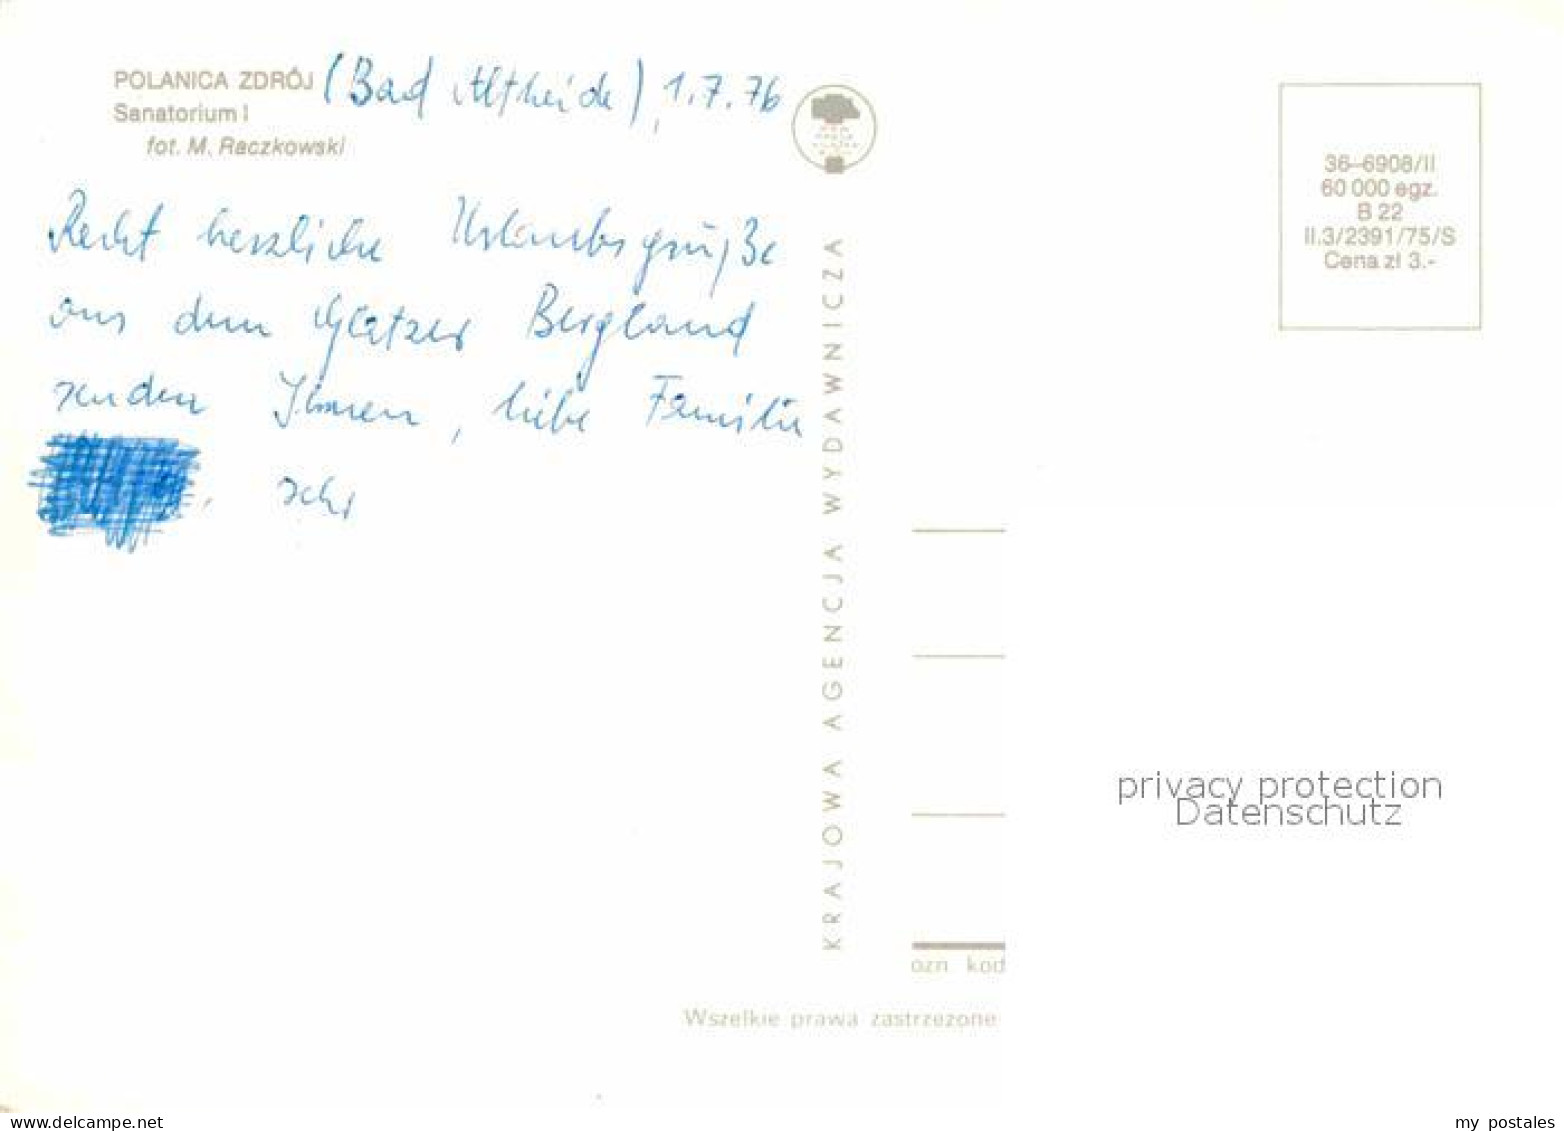 POLANICA ZDRÓJ (Bad Altheide), 1.7.76
Sanatorium I
fot. M. Raczkowski
Recht herzliche Urlaubsgrüße
aus dem Glatzer Bergland
senden Ihnen, liebe Familie
, Ihr
KRAJOWA AGENCJA WYDAWNICZA
36-6908/II
60 000 egz.
B 22
II.3/2391/75/S
Cena zł 3.-
privacy protection
Datenschutz
ozn kod
Wszelkie prawa zastrzeżone
www.delcampe.net
my_postales